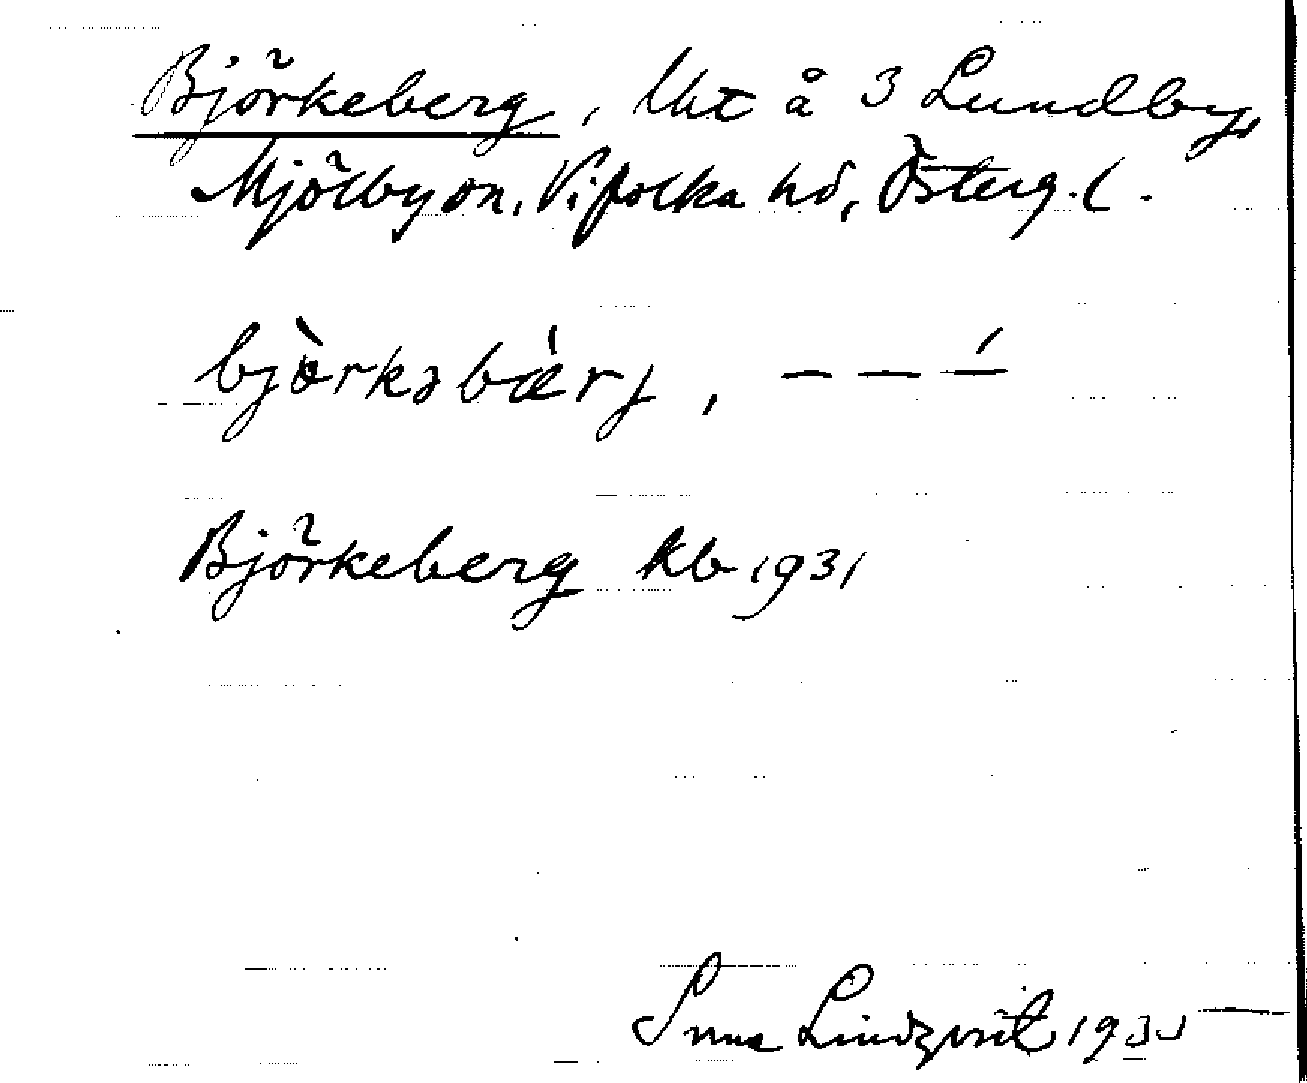 Björkeberg, lht å 3 Lundby,
Mjölby sn, Vifolka hd, Österg. l.
bjòrkəbǽrj, – – –́
Björkeberg kb 1931
Lindqvist